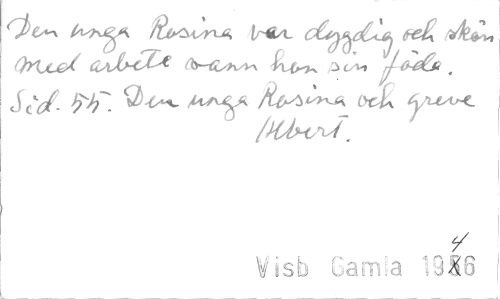 Den unga Rosina var dygdig och skön
med arbete vann hon sin föda.
Sid. 55. Den unga Rosina och greve
Albert.
4
Visb Gamla 1986